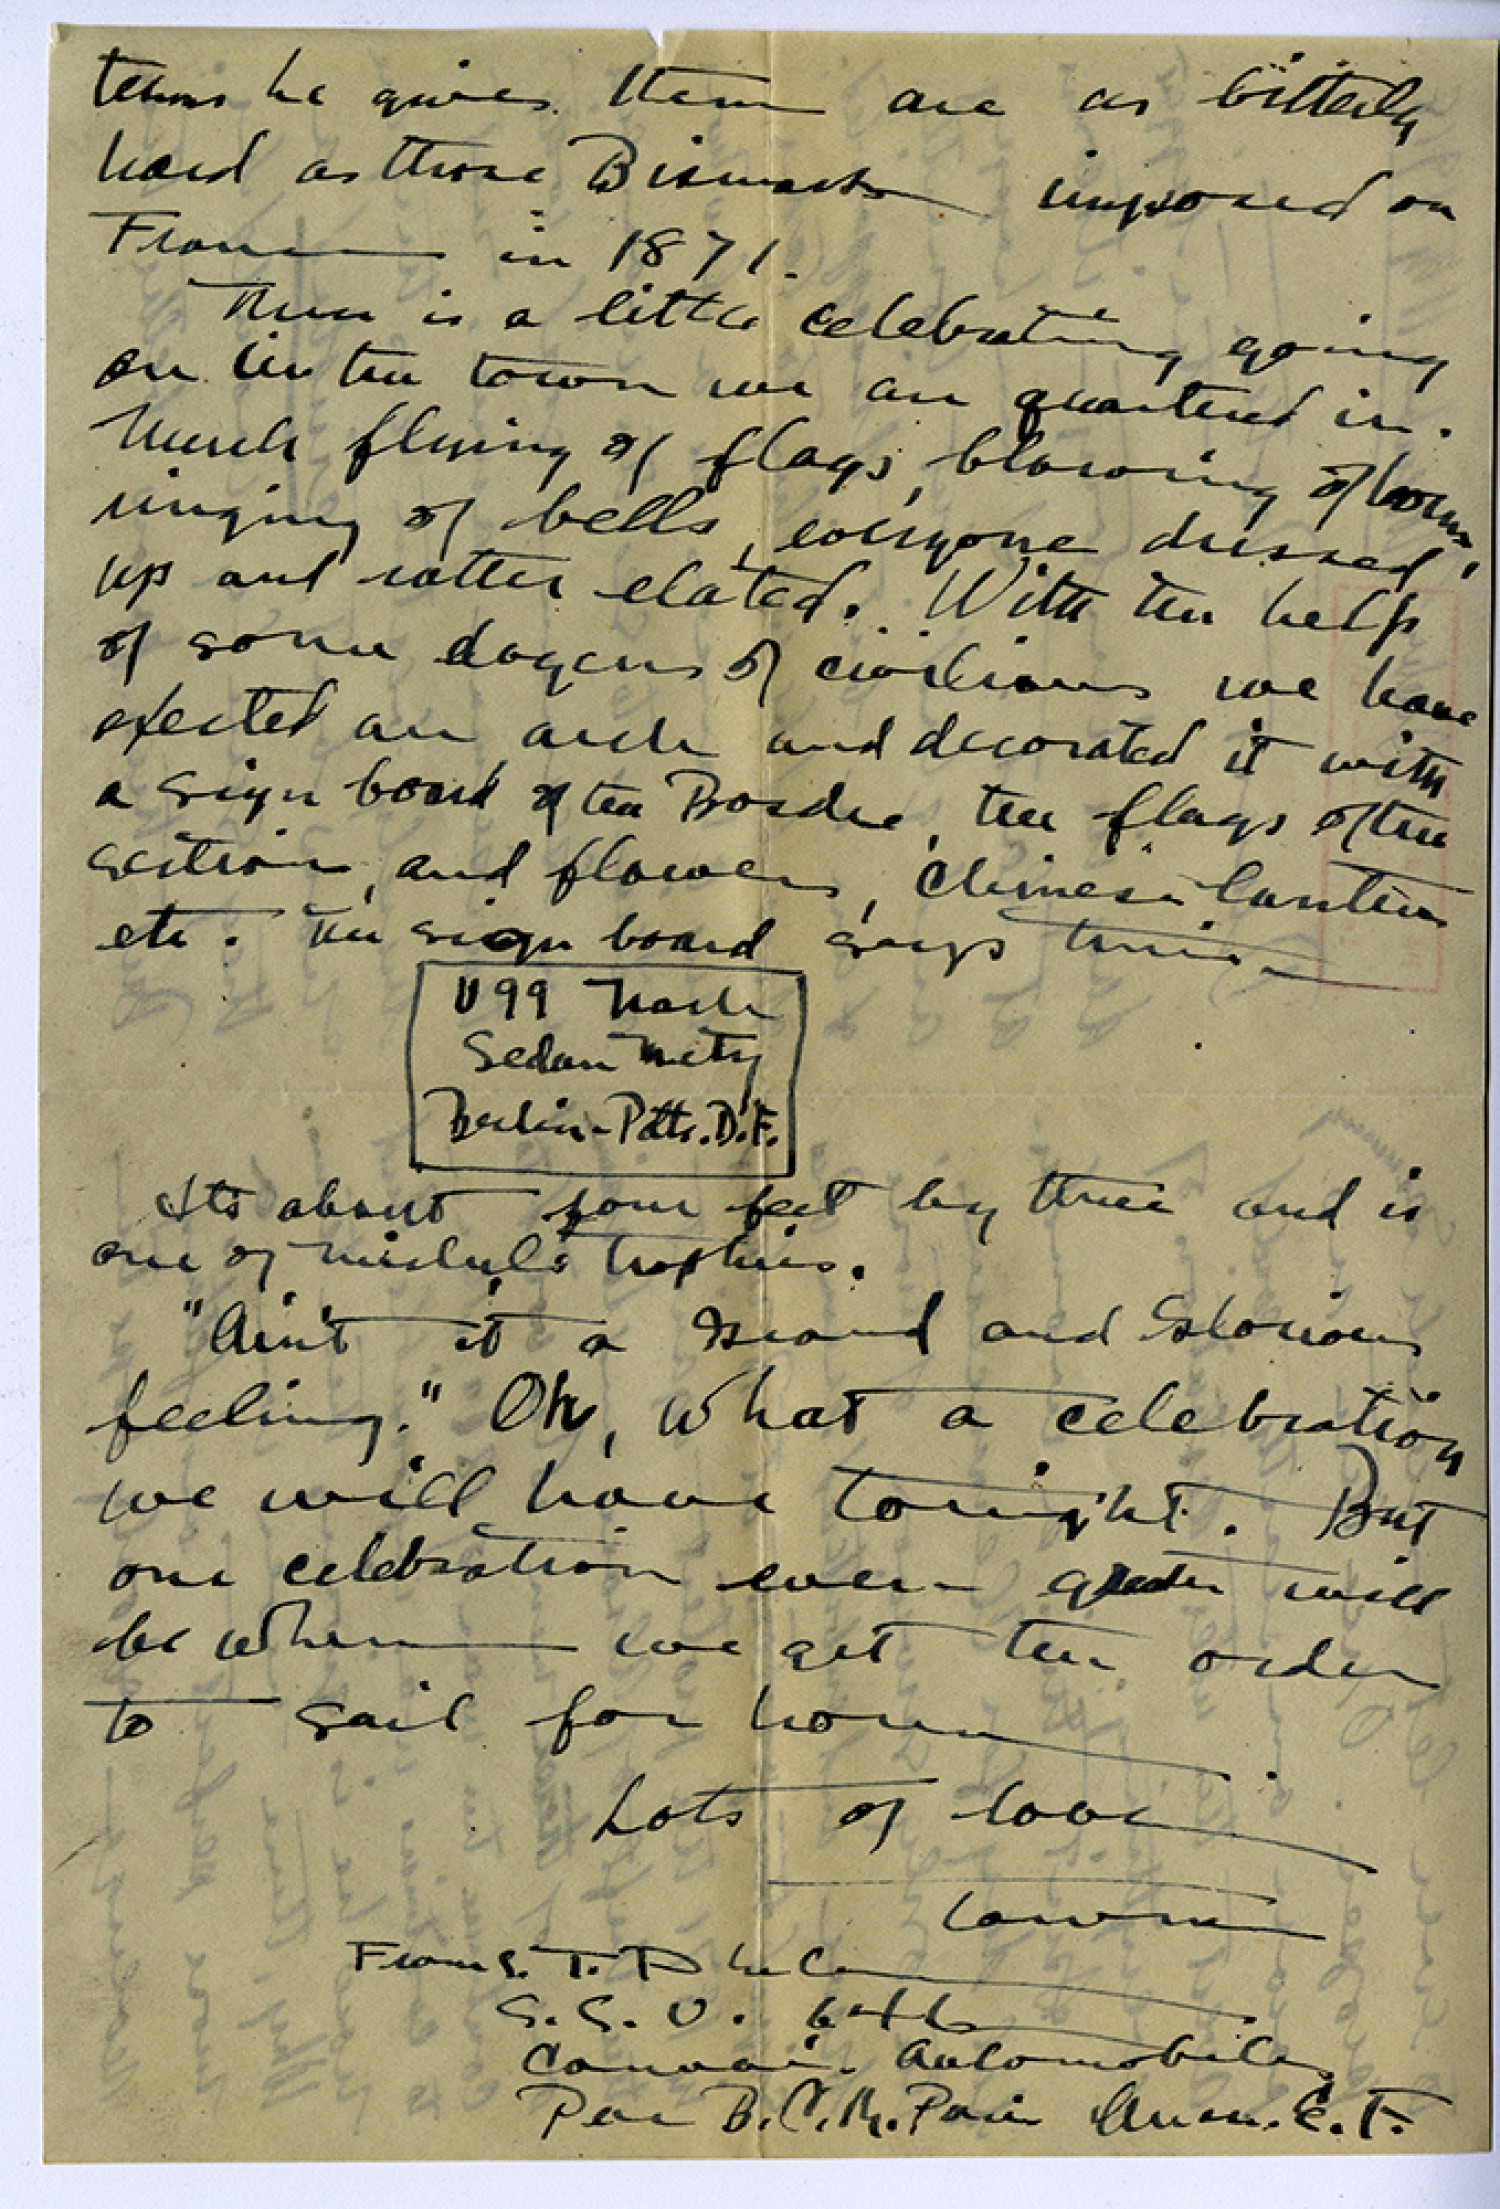 terms he gives them are as bitterly
hard as those Bismark imposed on
France in 1871.
There is a little celebrating going
on in the town we are quartered in.
Much flying of flags, blowing of horns,
ringing of bells, everyone dressed
up and rather elated. With the help
of some dozens of civilians we have
erected an arch and decorated it with
a sign board of the Boche, the flags of the
section, and flowers, Chinese lanterns
etc. The sign board says this
Nach
Sedan Metz
Berlin-
Its about four feet by three and is
one of trophies.
"Ain't it a Grand and Glorious
feeling." Oh, what a celebration
we will have tonight. But
one celebration even greater will
be when we get the order
to sail for home
Lots of love
From S. T. Phelan
S.S.U. 646
Convois. Automobiles
Par B.C.M. Paris Amer. E.F.